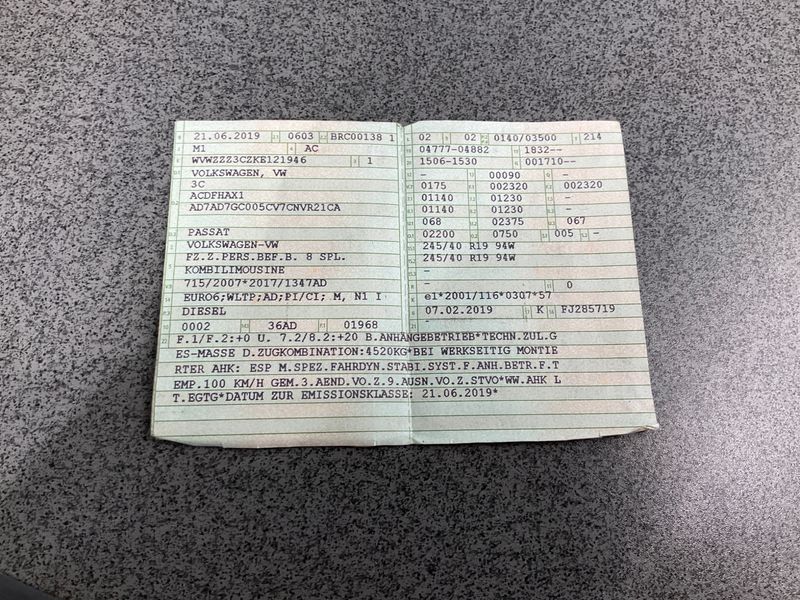 21.06.2019 0603 BRC00138 1
M1 AC
WVWZZZ3CZKE121946 1
VOLKSWAGEN, VW
3C
ACDFHAX1
AD7AD7GC005CV7CNVR21CA
PASSAT
VOLKSWAGEN-VW
FZ.Z.PERS.BEF.B. 8 SPL.
KOMBILIMOUSINE
715/2007*2017/1347AD
EURO6;WLTP;AD;PI/CI; M, N1 I
DIESEL
0002 36AD 01968
02 02 0140/03500 214
04777-04882 1832--
1506-1530 001710--
- 00090 -
0175 002320 002320
01140 01230 -
01140 01230 -
068 02375 067
02200 0750 005 -
245/40 R19 94W
245/40 R19 94W
-
- 0
e1*2001/116*0307*57
07.02.2019 K FJ285719
-
F.1/F.2:+0 U. 7.2/8.2:+20 B.ANHÄNGEBETRIEB*TECHN.ZUL.G
ES-MASSE D.ZUGKOMBINATION:4520KG*BEI WERKSEITIG MONTIE
RTER AHK: ESP M.SPEZ.FAHRDYN.STABI.SYST.F.ANH.BETR.F.T
EMP.100 KM/H GEM.3.AEND.VO.Z.9.AUSN.VO.Z.STVO*WW.AHK L
T.EGTG*DATUM ZUR EMISSIONSKLASSE: 21.06.2019*